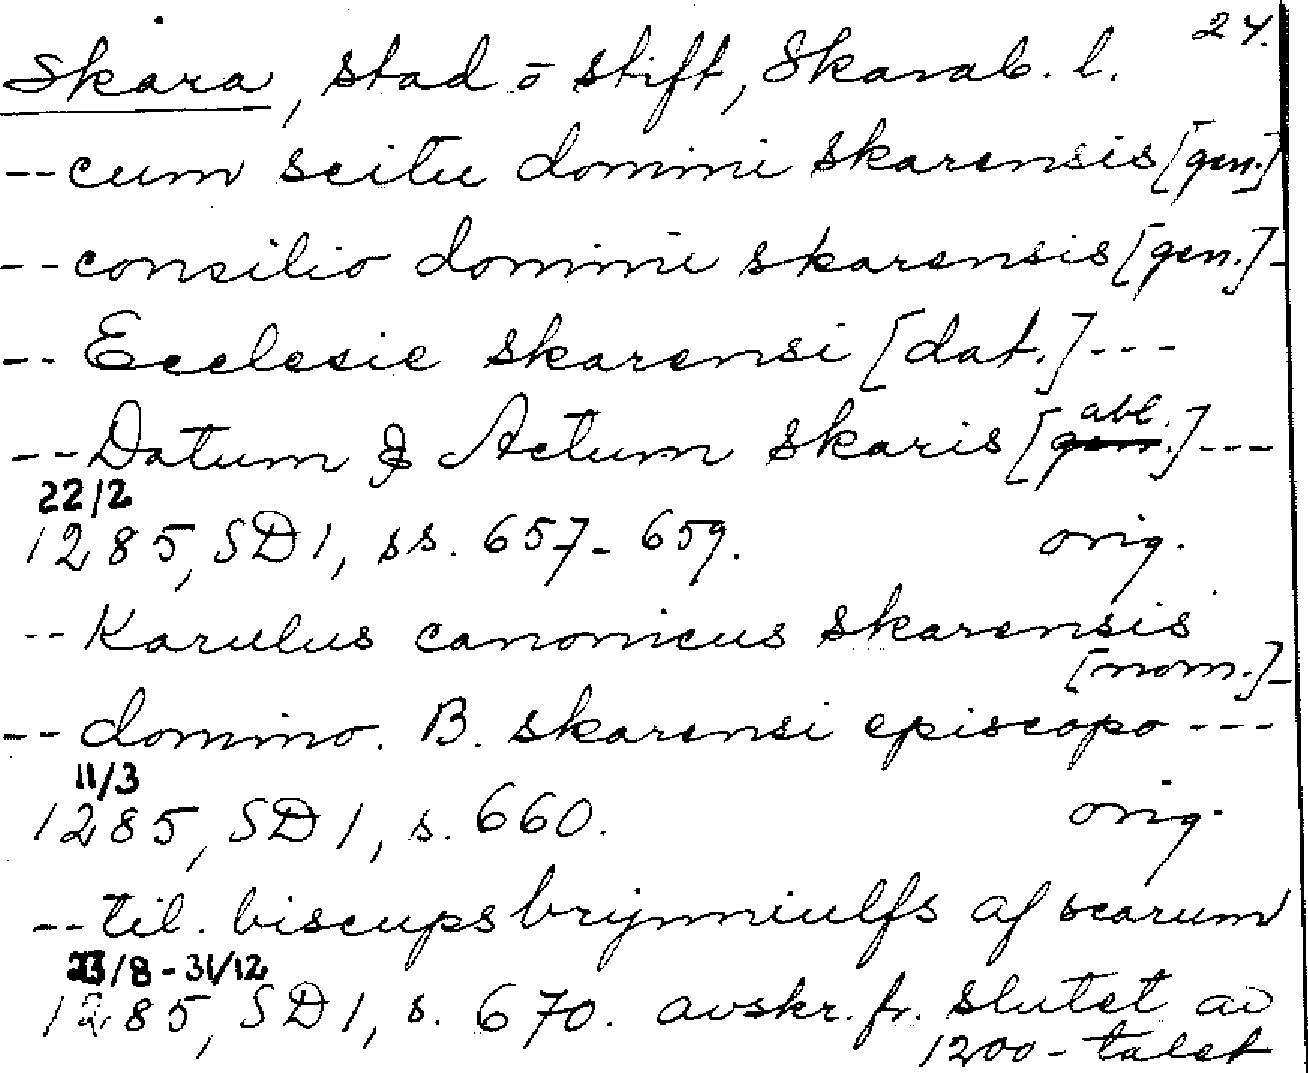 24.
Skara, stad o stift, Skarab. l.
-- cum scitu domini skarensis [gen.]
-- consilio domini skarensis [gen.] -
-- Ecclesie skarensi [dat.] ---
abl.
-- Datum & Actum skaris [gen.] ---
22/2
1285, SD 1, ss. 657-659. orig.
-- Karulus canonicus skarensis
[nom.] -
-- domino. B. skarensi episcopo ---
11/3
1285, SD 1, s. 660. orig.
-- til. biscups brynniulfs af scarum
/8 - 31/12
1285, SD 1, s. 670. avskr. fr. slutet av
1200-talet